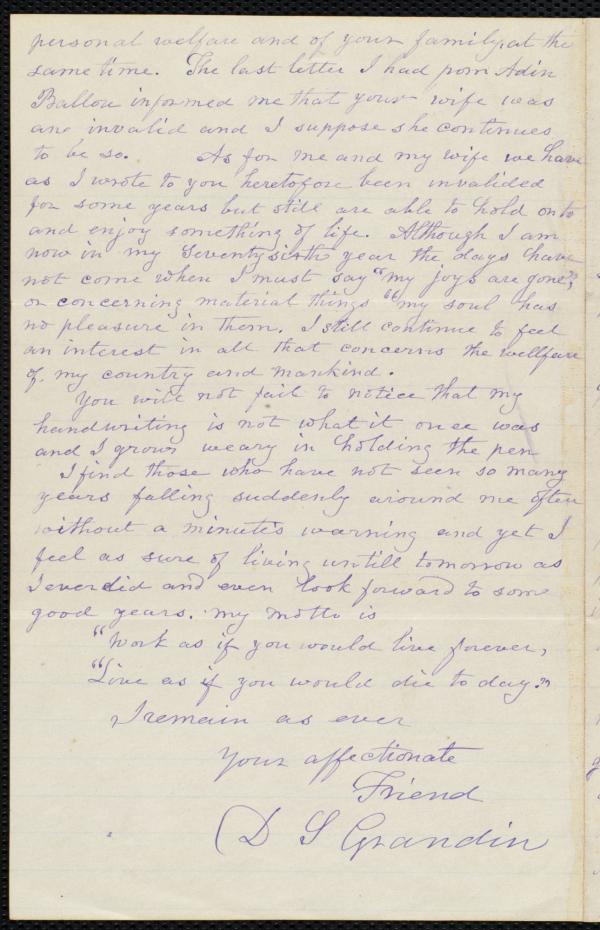 personal welfare and of your family, at the
same time. The last letter I had from Adin
Ballou informed me that your wife was
an invalid and I suppose she continues
to be so. As for me and my wife we have
as I wrote to you heretofore been invalided
for some years but still are able to hold on to
and enjoy something of life. Although I am
now in my Seventysixth year the days have
not come when I must say "my joys are gone",
or concerning material things "my soul has
no pleasure in them. I still continue to feel
an interest in all that concerns the wellfare
of my country and mankind.
You will not fail to notice that my
handwriting is not what it once was
and I grow weary in holding the pen
I find those who have not seen so many
years falling suddenly around me often
without a minute's warning and yet I
feel as sure of living untill tomorrow as
I ever did and even look forward to some
good years. my motto is
"Work as if you would live forever,
"Live as if you would die to day."
I remain as ever
Your affectionate
Friend
D S Grandin